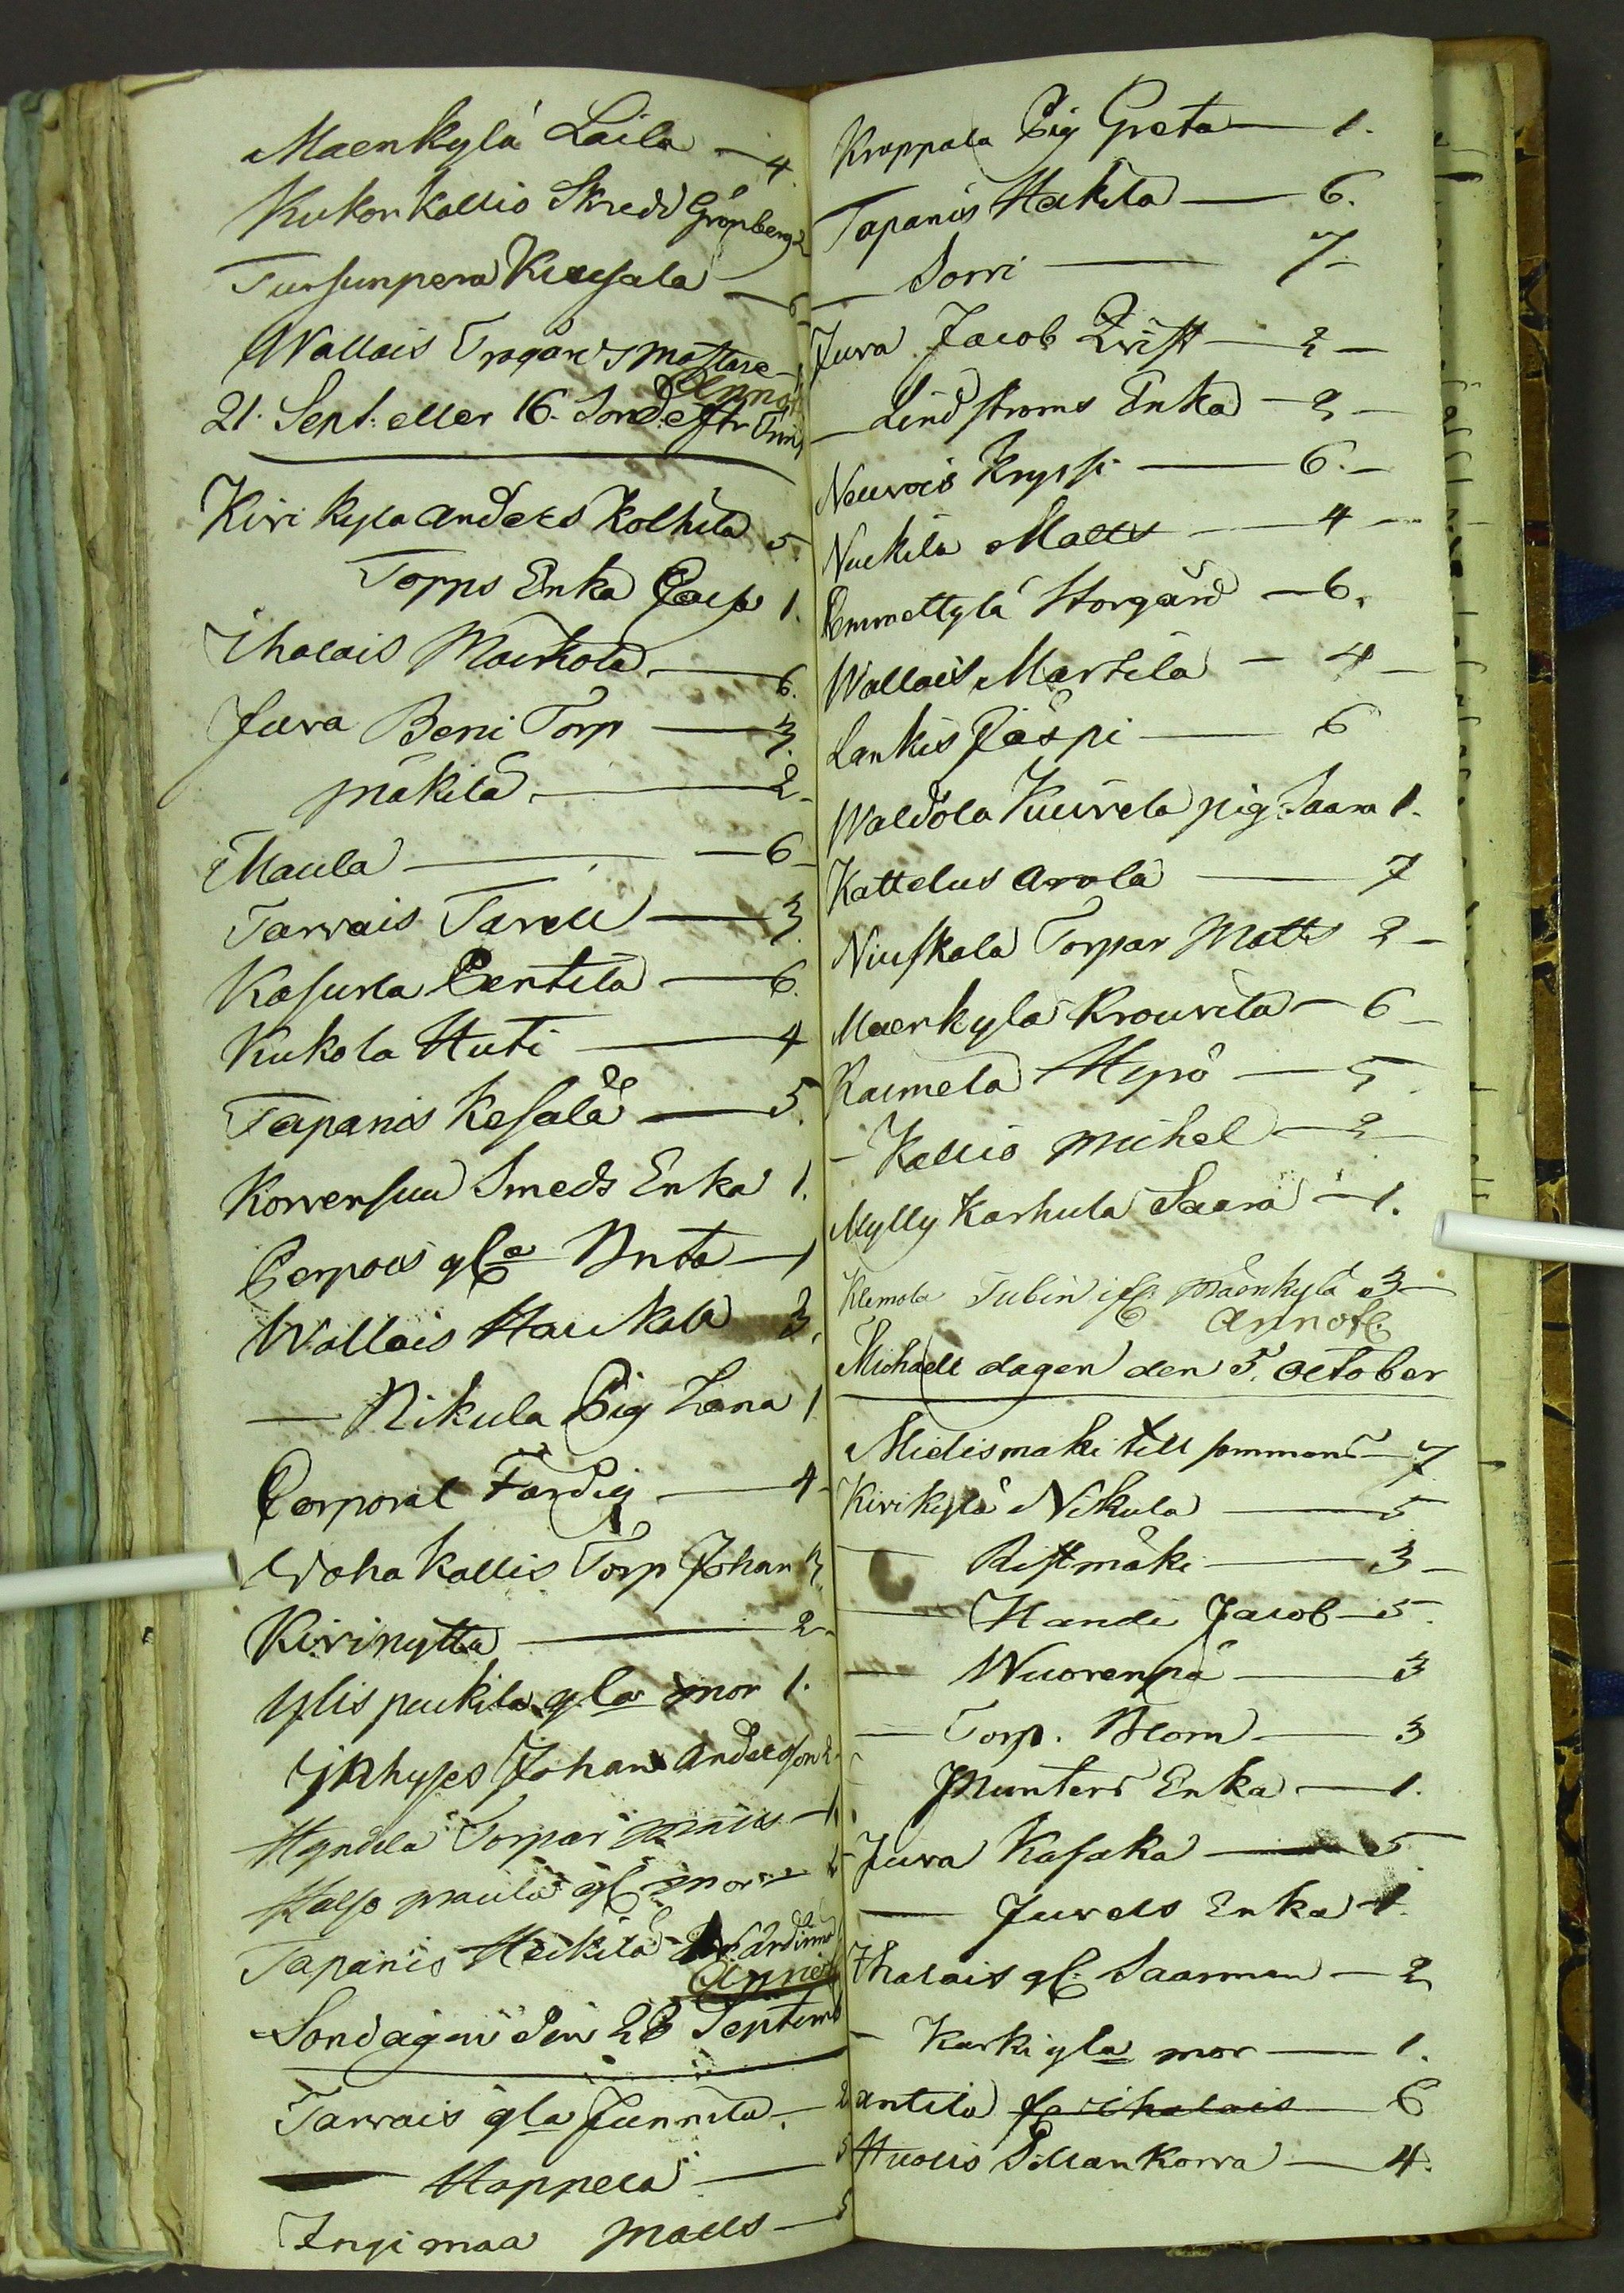 Maenkylä Laila — 4
Kukonkallio Skredd Grönberg 2
Tursunpera Kuusala — 6
Wallais Trägårdsmästare —
Annot
21. Sept. eller 16. Sond. eftr Trin
Kirikyla anders Kolhila 5.
Topps Enka Caisa 1.
Ihalais Markola — 6.
Juva Beni Torp — 3.
mäkilä — 2.
Maula — 6
Tarvais Tarell — 3.
Kasurla Pentila — 6.
Kukola Huti — 4
Tapanis Kesälä — 5.
Korvensuu Smeds Enka 1.
Perpois gla Brita — 1
Wallais Haukala 3.
— Nikula Pig Lena 1
Corporal Färdig — 4
Waha Kallis Torp Johan 3.
Kirinytta — 2
Ylispaukila gla mor 1.
Johan andersson 2
Hyndela Torpar — 1.
maula gl mor — 2
Tapanis Heikilä
Annot
Sondagen den 28 Septemb
Tarvais gla Junnila — 2
— Hoppela — 5
Ingimaa Matts — 5
Kroppala Pig Greta — 1.
Tapanis Hakila — 6.
— Sorri — 7 —
Juva Jacob Qvist — 2 —
— Lindströms Enka — 2 —
Neuvois Kryssi — 6. —
Nuckila Matts — 4 —
Emmettylä Storgård — 6.
Wallais Martila — 4 —
Lankis Päspi — 6
Waldola Kuuvela pig. Saara 1.
Kattelus Arola — 7
Niuskala Torpar Matts 2 —
Maenkyla Krouvila — 6 —
Raimela Hyrö — 5
— Kallio Michel — 2 —
Mylly Karhula Saara — 1.
Klemola Tubin ifr. Mäenkylä 3 —
annot
Michaeli dagen den 5. October
Miedismaki till sommans — 7
Kirikylä Nikula — 5
— Ristmäki — 3 —
— Handi Jacob — 5.
— Wuorenpä — 3
— Torp. Blom — 3
— Munters Enka — 1.
Juva Kasaka — 5
— Juvels Enka 1.
Ihalais gl. Saarman — 2
— Karki gla mor — 1.
Antila fr Ihalais 6
Huolis Pillankorva — 4.